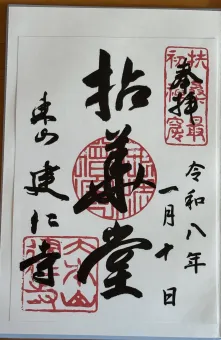 扶桑最
初禅窟
奉拝
令和八年
一月十日
拈華堂
東山 建仁寺